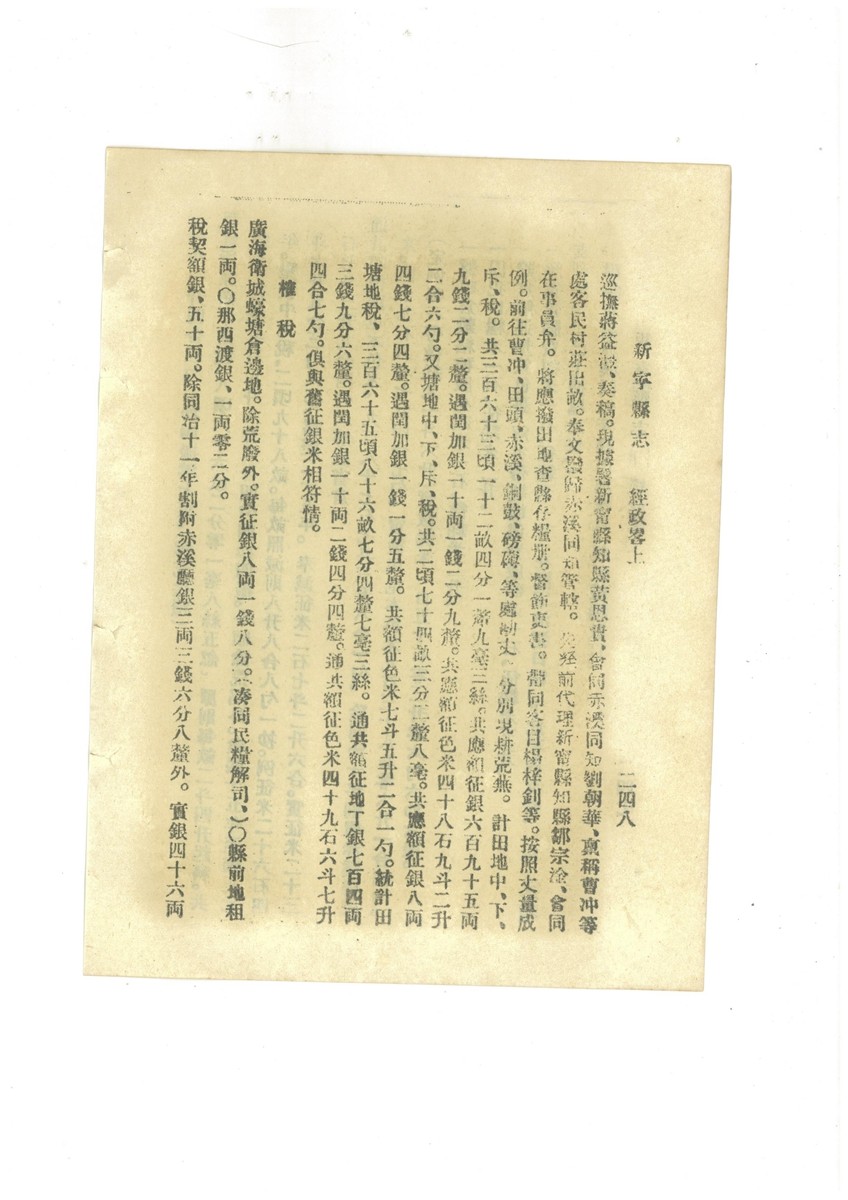 新寧縣志　經政畧上　二四八
巡撫蔣益澧、奏稿。現據署新甯縣知縣黃恩貴、會同赤溪同知劉朝華、稟稱曹冲等
處客民村莊田畝。奉文撥歸赤溪同知管轄。先經前代理新甯縣知縣鄒宗淦、會同
在事員弁。將應撥出地查縣存糧册。督飭吏書。帶同客目楊梓釗等。按照丈量成
例。前往曹冲、田頭、赤溪、銅鼓、磅礴、等處勘丈。分別現耕荒蕪。計田地中、下、
斥、稅。共三百六十三頃一十二畝四分一釐九毫三絲。共應額征銀六百九十五両
九錢二分二釐。遇閏加銀一十両一錢二分九釐。共應額征色米四十八石九斗二升
二合六勺。又塘地中、下、斥、稅。共二頃七十四畝三分二釐八毫。共應額征銀八両
四錢七分四釐。遇閏加銀一錢一分五釐。共額征色米七斗五升二合一勺。統計田
塘地稅、三百六十五頃八十六畝七分四釐七毫三絲。通共額征地丁銀七百四両
三錢九分六釐。遇閏加銀一十両二錢四分四釐。通共額征色米四十九石六斗七升
四合七勺。俱與舊征銀米相符情。
榷稅
廣海衛城蠔塘倉邊地。除荒廢外。實征銀八両一錢八分。（湊同民糧解司、）〇縣前地租
銀一両。〇那西渡銀、一両零二分。
稅契額銀、五十両。除同治十一年割附赤溪廳銀三両三錢六分八釐外。實銀四十六両